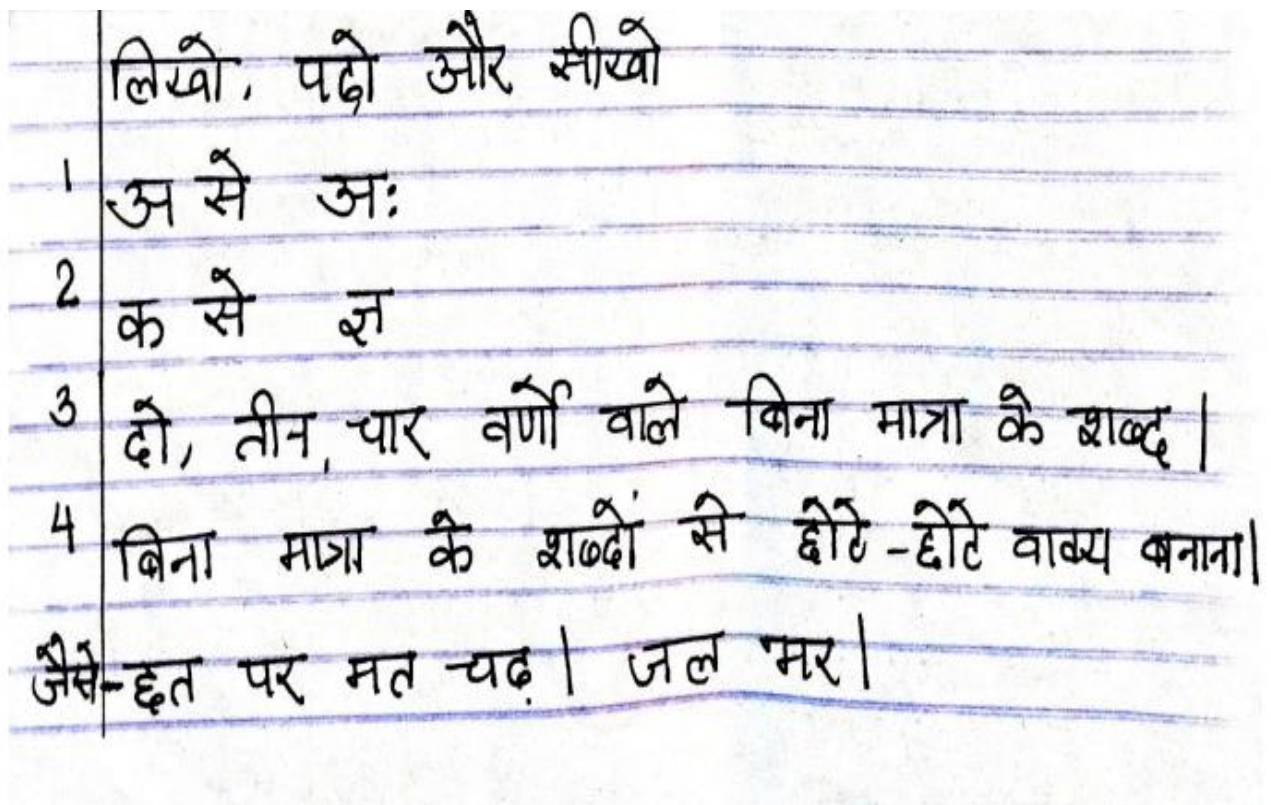 लिखो, पढो और सीखो
1 अ से अः
2 क से ज्ञ
3 दो, तीन, चार वर्णों वाले बिना मात्रा के शब्द।
4 बिना मात्रा के शब्दों से छोटे-छोटे वाक्य बनाना।
जैसे-छत पर मत चढ़। जल भर।